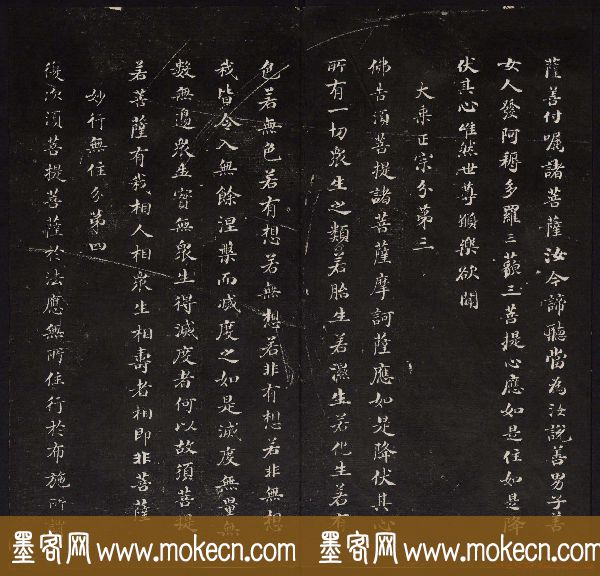 薩善付囑諸菩薩汝今諦聽當為汝說善男子善
女人發阿耨多羅三藐三菩提心應如是住如是降
伏其心唯然世尊願樂欲聞
大乘正宗分第三
佛告須菩提諸菩薩摩訶薩應如是降伏其心
所有一切衆生之類若胎生若濕生若化生若有
色若無色若有想若無想若非有想若非無想
我皆令入無餘涅槃而滅度之如是滅度無量無
數無邊衆生實無衆生得滅度者何以故須菩提
若菩薩有我相人相衆生相壽者相即非菩薩
妙行無住分第四
復次須菩提菩薩於法應無所住行於布施所謂
墨客网 www.mokecn.com 墨客网 www.mokecn.com